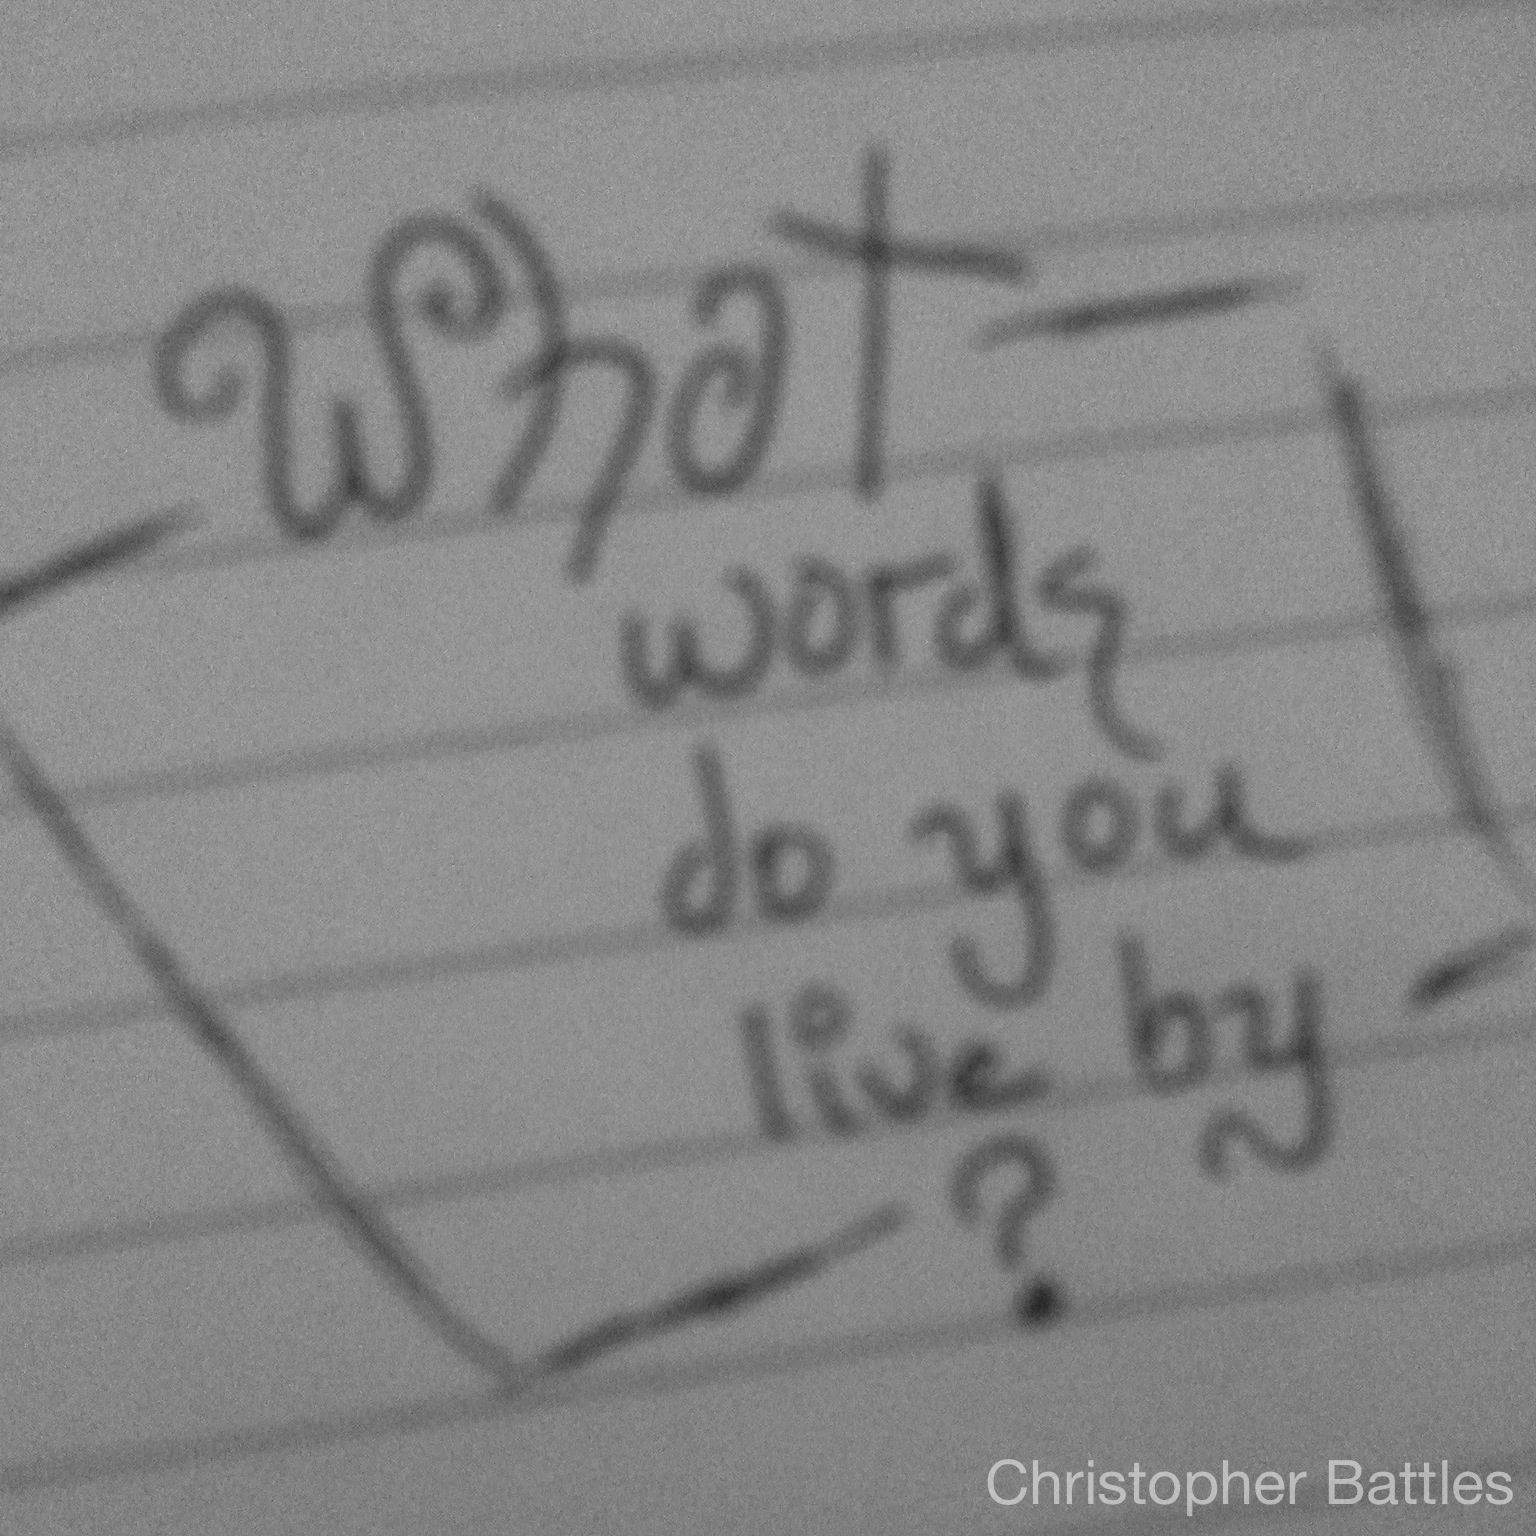 What
words
do you
live by
?
Christopher Battles